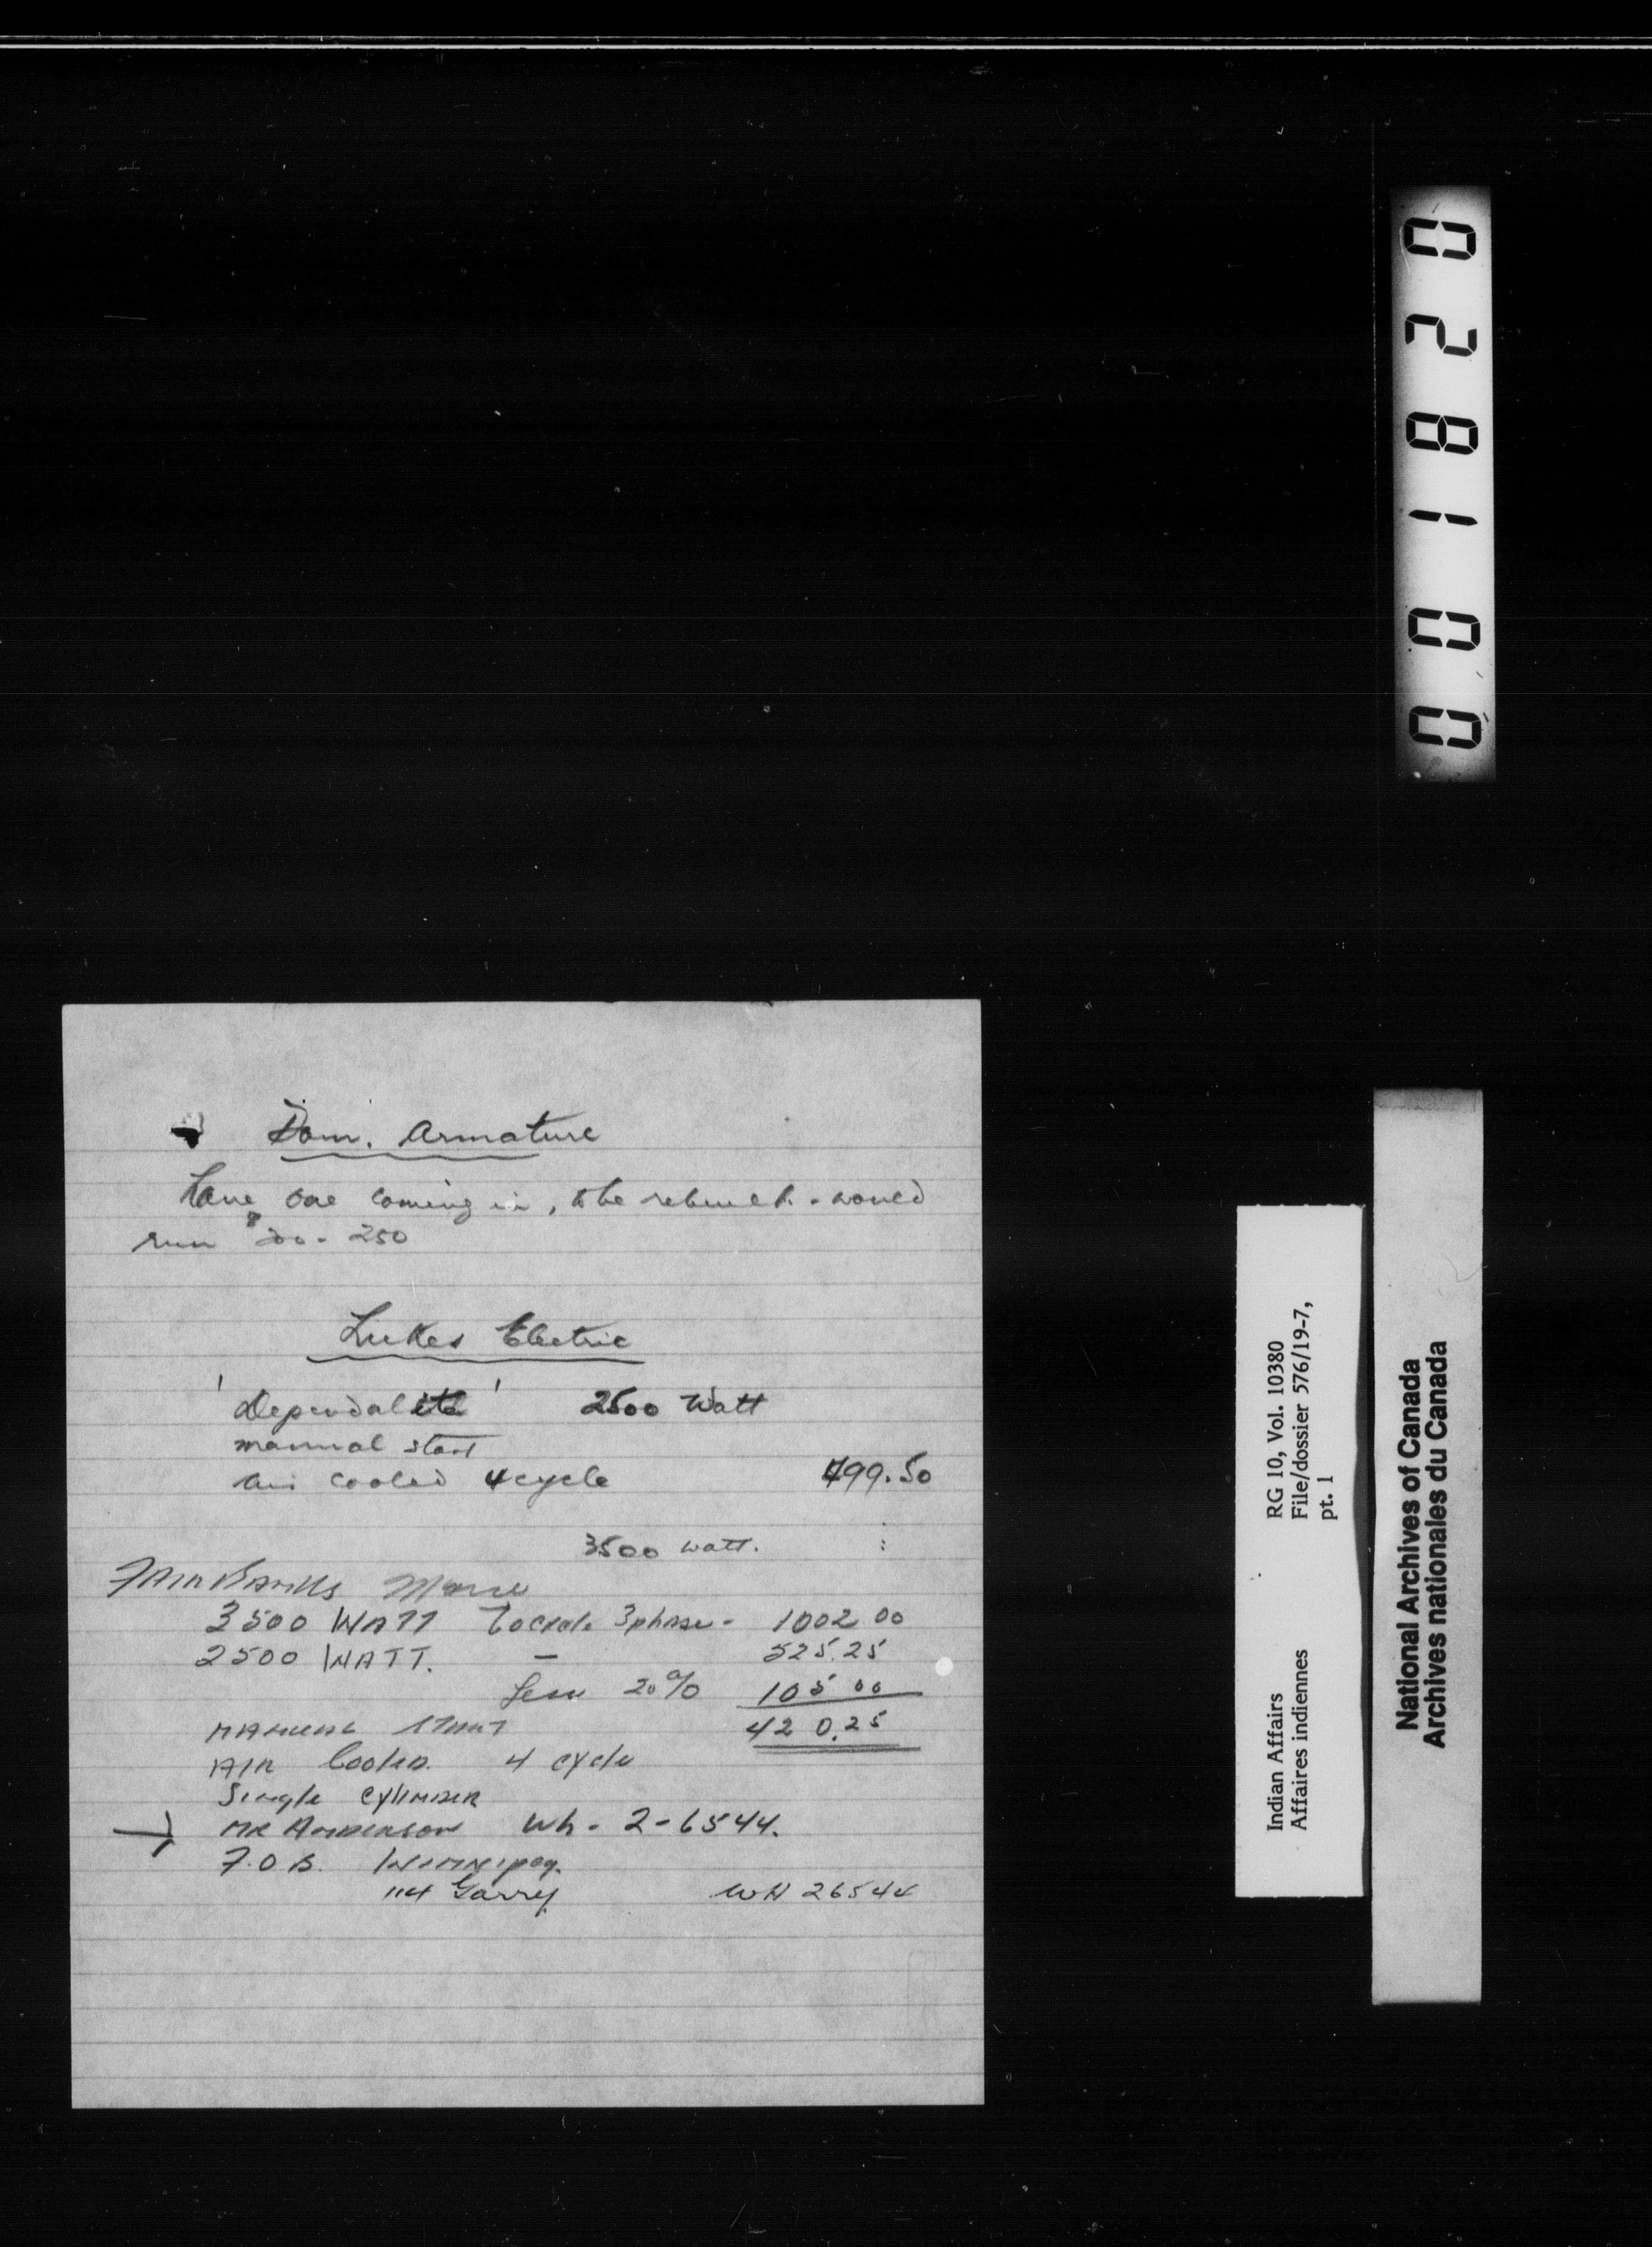 Dom. Armature
Have one coming in, to be rebuilt - would
run 200 - 250
Lukes Electric
'Dependalite' 2500 Watt
manual start
air cooled 4 cycle 499.50
3500 watt. :
FAIRBANKS Morse
3500 WATT 60 cycle 3 phase - 1002 00
2500 WATT. — 525.25
Less 20% 105 00
MANUAL START 420.25
AIR Cooled. 4 cycle
Single CYLINDER
MR ANDERSON Wh - 2-6544.
F.O.B. Winnipeg.
114 Garry WH 26544
001820
RG 10, Vol. 10380
File/dossier 576/19-7,
pt. 1
Indian Affairs
Affaires indiennes
National Archives of Canada
Archives nationales du Canada